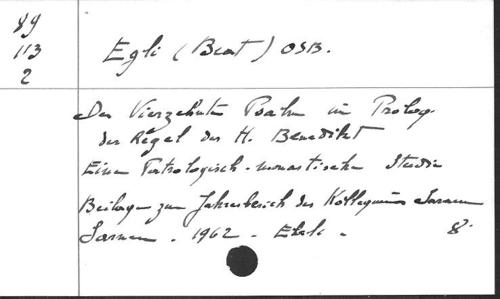 89
113
2
Egli (Beat) OSB.
Der Vierzehnte Psalm im Prolog
der Regel des H. Benedikt
Eine Patrologisch-monastische Studie
Beilage zum Jahresbericht des Kollegiums Sarnen
Sarnen - 1962 - Ehrli - 8°